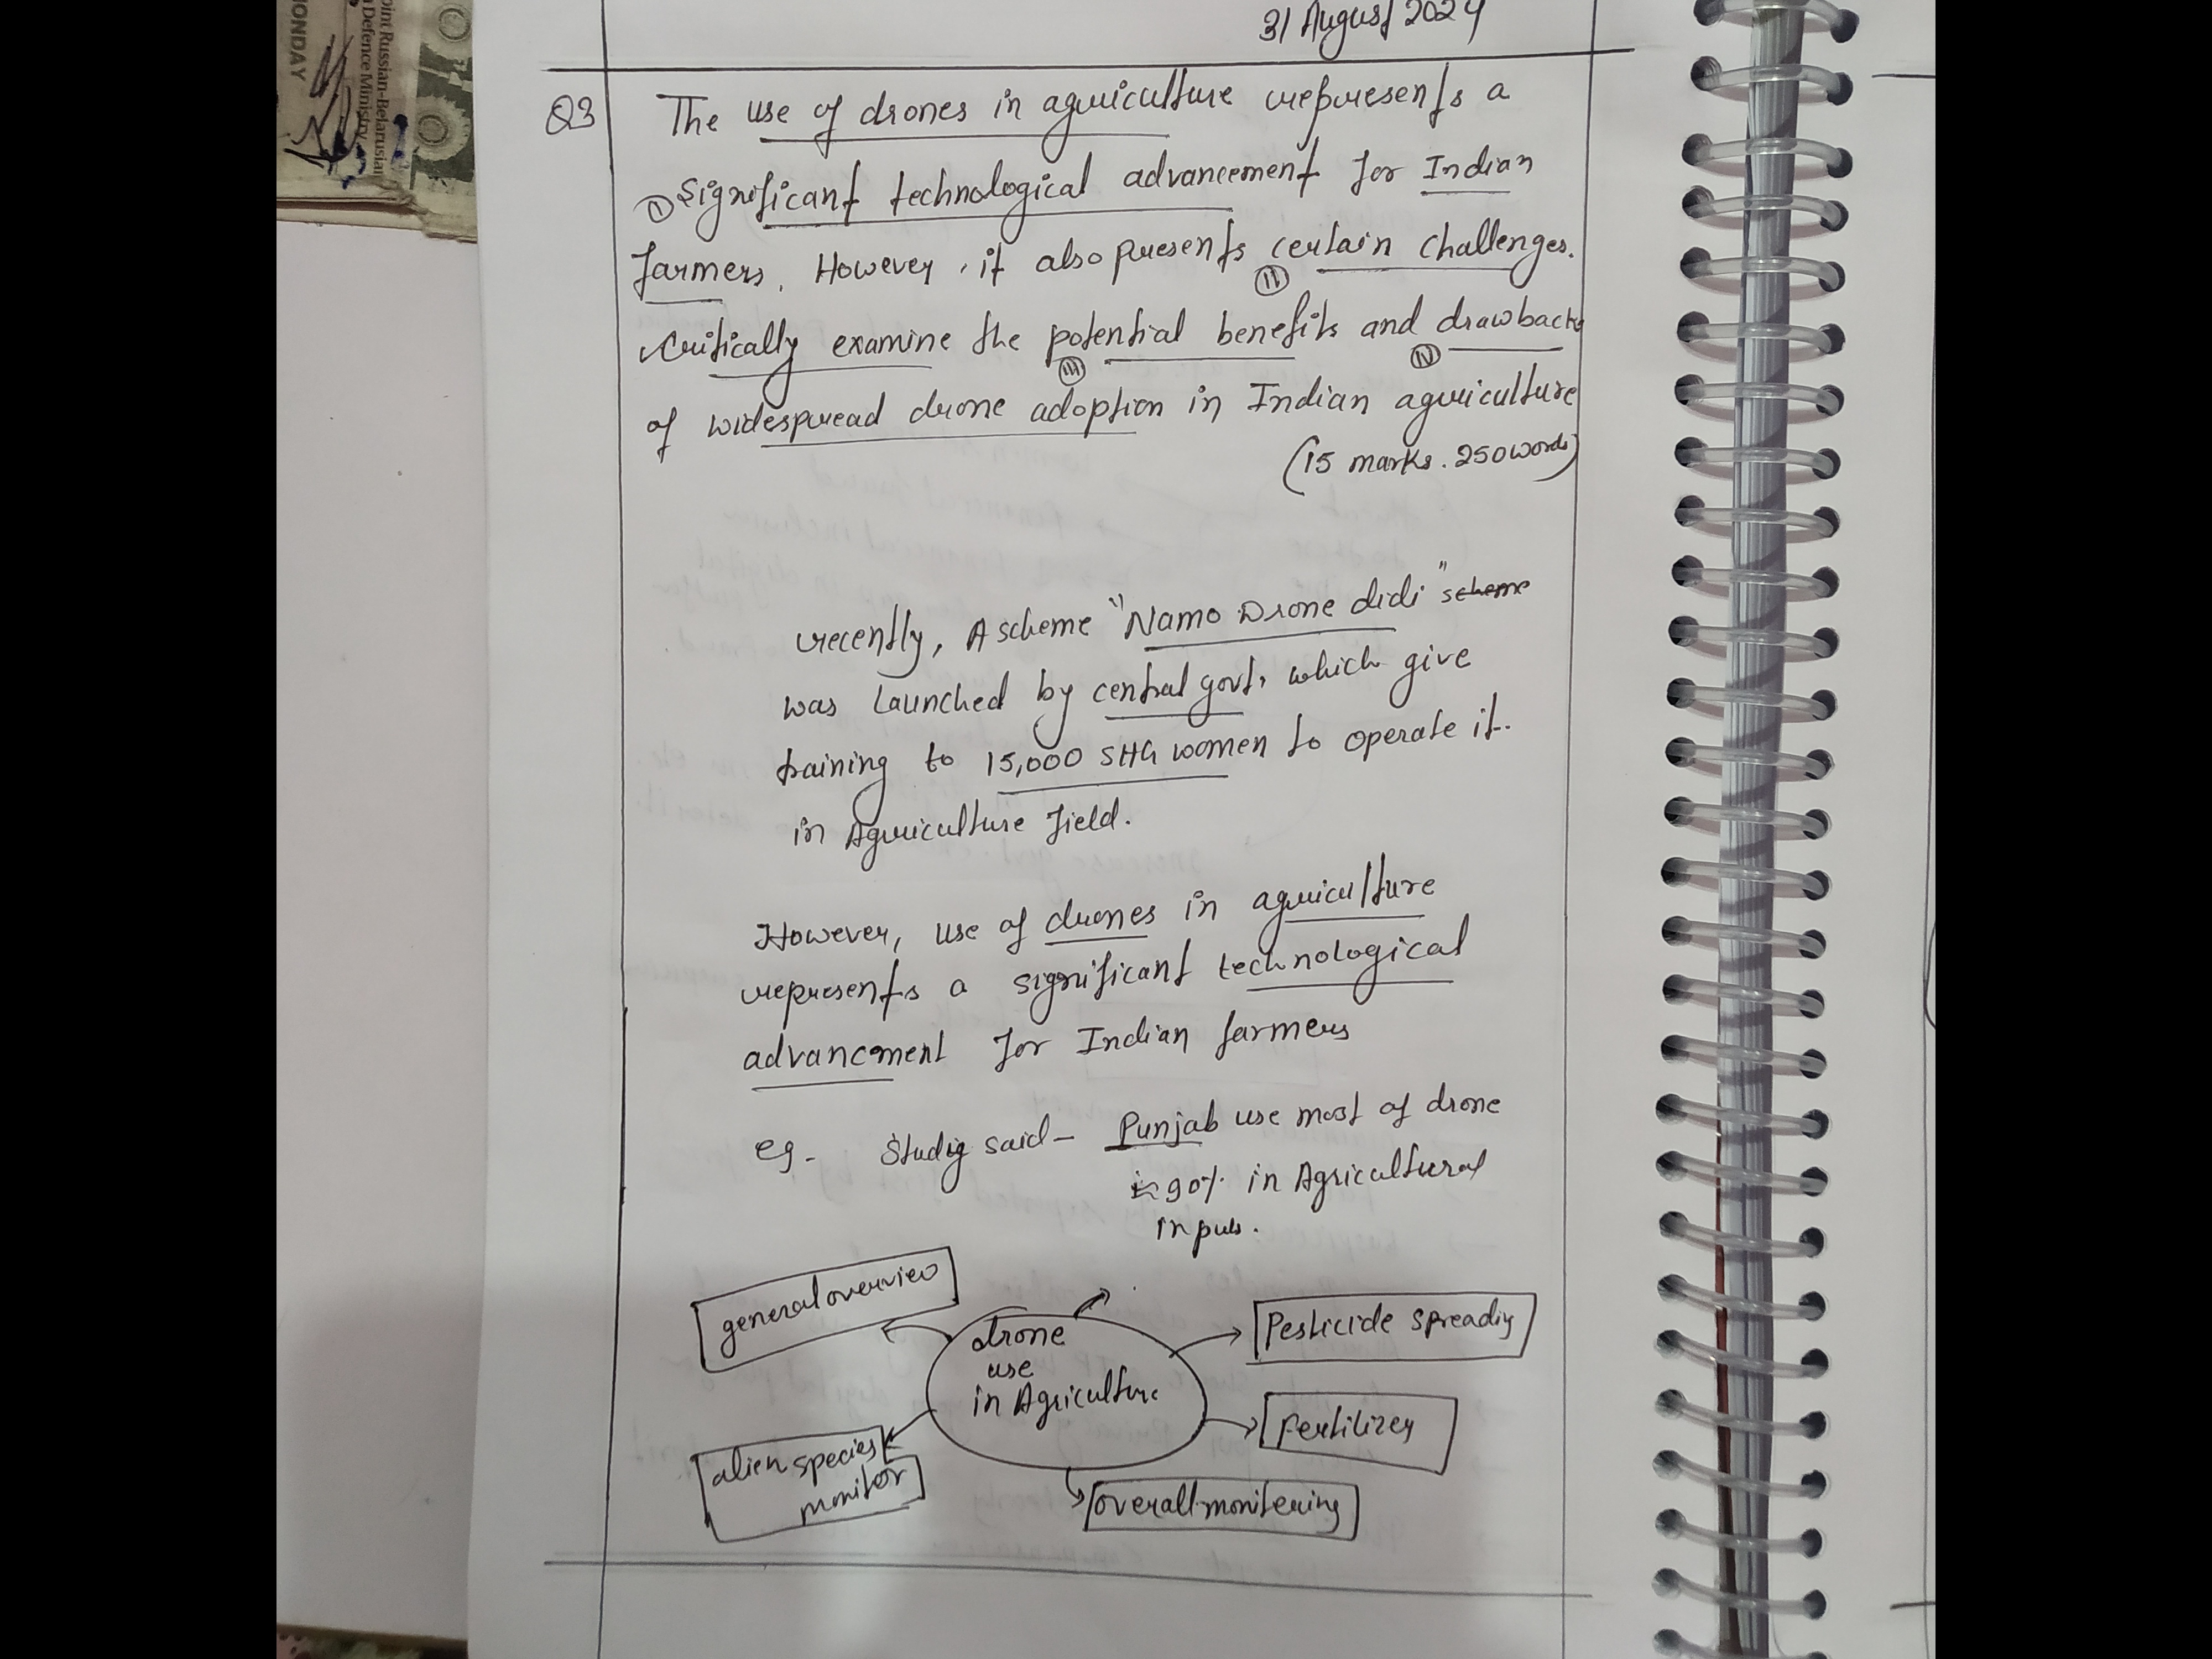 MONDAY
oint Russian-Belarusian
Defence Ministry
31 August 2024
Q3
The use of drones in agriculture represents a
(I) Significant technological advancement for Indian
farmers. However, it also presents certain challenges.
(II)
critically examine the potential benefits and drawbacks
(III) (IV)
of widespread drone adoption in Indian agriculture
(15 marks. 250 words)
recently, A scheme "Namo Drone didi" scheme
was launched by central govt, which give
training to 15,000 SHG women to operate it.
in Agriculture field.
However, use of drones in agriculture
represents a significant technological
advancement for Indian farmers
eg - Studig said - Punjab use most of drone
90% in Agricultural
inputs.
general overview
drone
use
in Agriculture
Pesticide spreadig
fertilizer
alien species
monitor
overall monitering